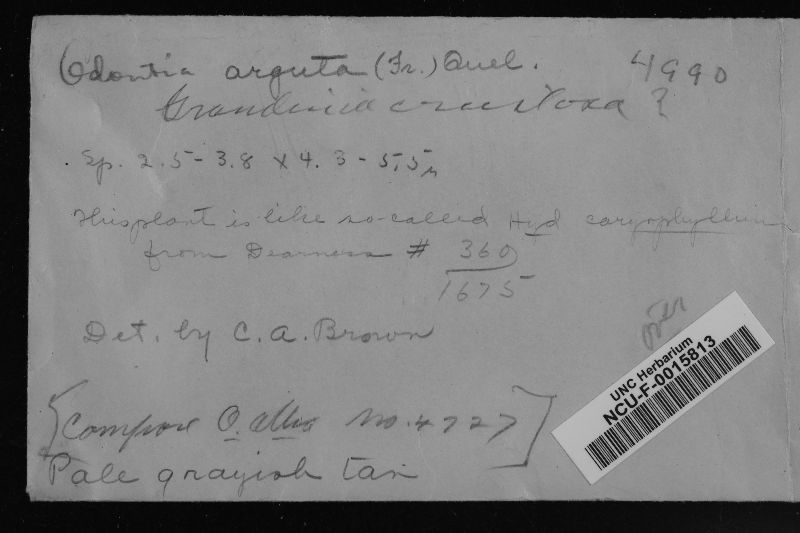 Odontia arguta (Fr.) Quel. 4990
Grandinia crustosa ?
Sp. 2.5 - 3.8 x 4.3 - 5.5 µ
This plant is like so-called Hyd caryophylleum
from Dearness # 360
1675
Det. by C. A. Brown
UNC Herbarium
NCU-F-0015813
[Compare O. alba no. 4727]
Pale grayish tan